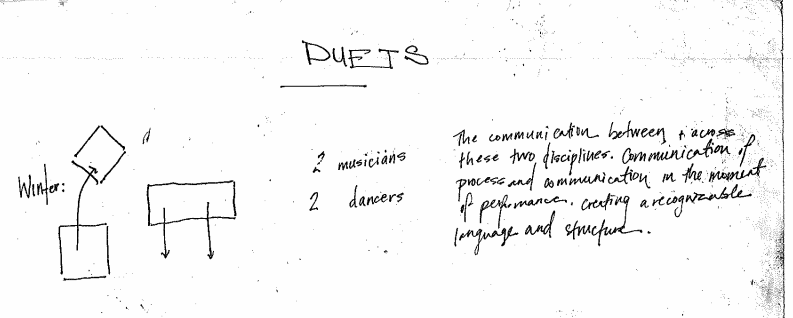 DUETS
Winter:
2 musicians
2 dancers
The communication between + across
these two disciplines. Communication of
process and communication in the moment
of performance. Creating a recognizable
language and structure.